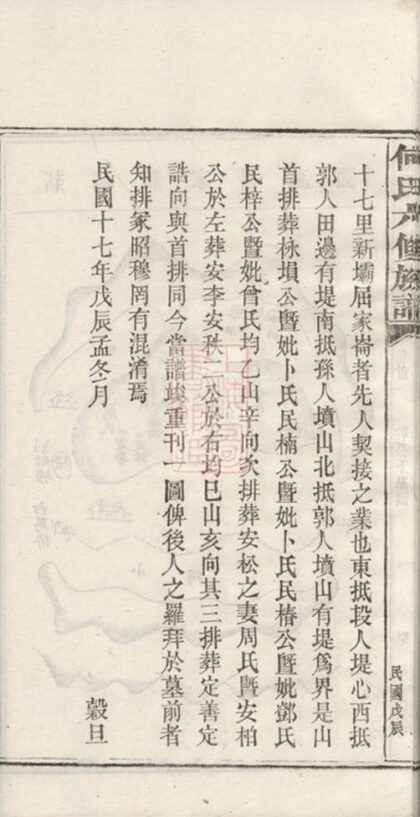 何氏六修族譜
民國戊辰
十七里新壩屈家崙者先人契接之業也東抵段人堤心西抵
郭人田邊有堤南抵孫人墳山北抵郭人墳山有堤爲界是山
首排葬栐塤公暨妣卜氏民楠公暨妣卜氏民椿公暨妣鄧氏
民梓公暨妣曾氏均乙山辛向次排葬安松之妻周氏暨安柏
公於左葬安李安秩二公於右均巳山亥向其三排葬定善定
誥向與首排同今當譜竣重刊一圖俾後人之羅拜於墓前者
知排冢昭穆罔有混淆焉
民國十七年戊辰孟冬月 穀旦